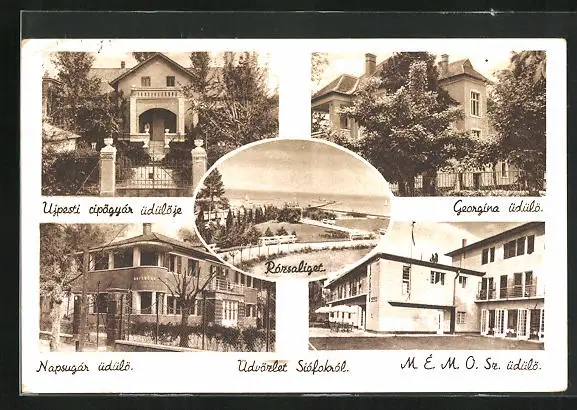 Ujpesti cipőgyár üdülője
Georgina üdülő.
Rózsaliget.
Napsugár üdülő.
Üdvözlet Siófokról.
M. É. M. O. Sz. üdülő.